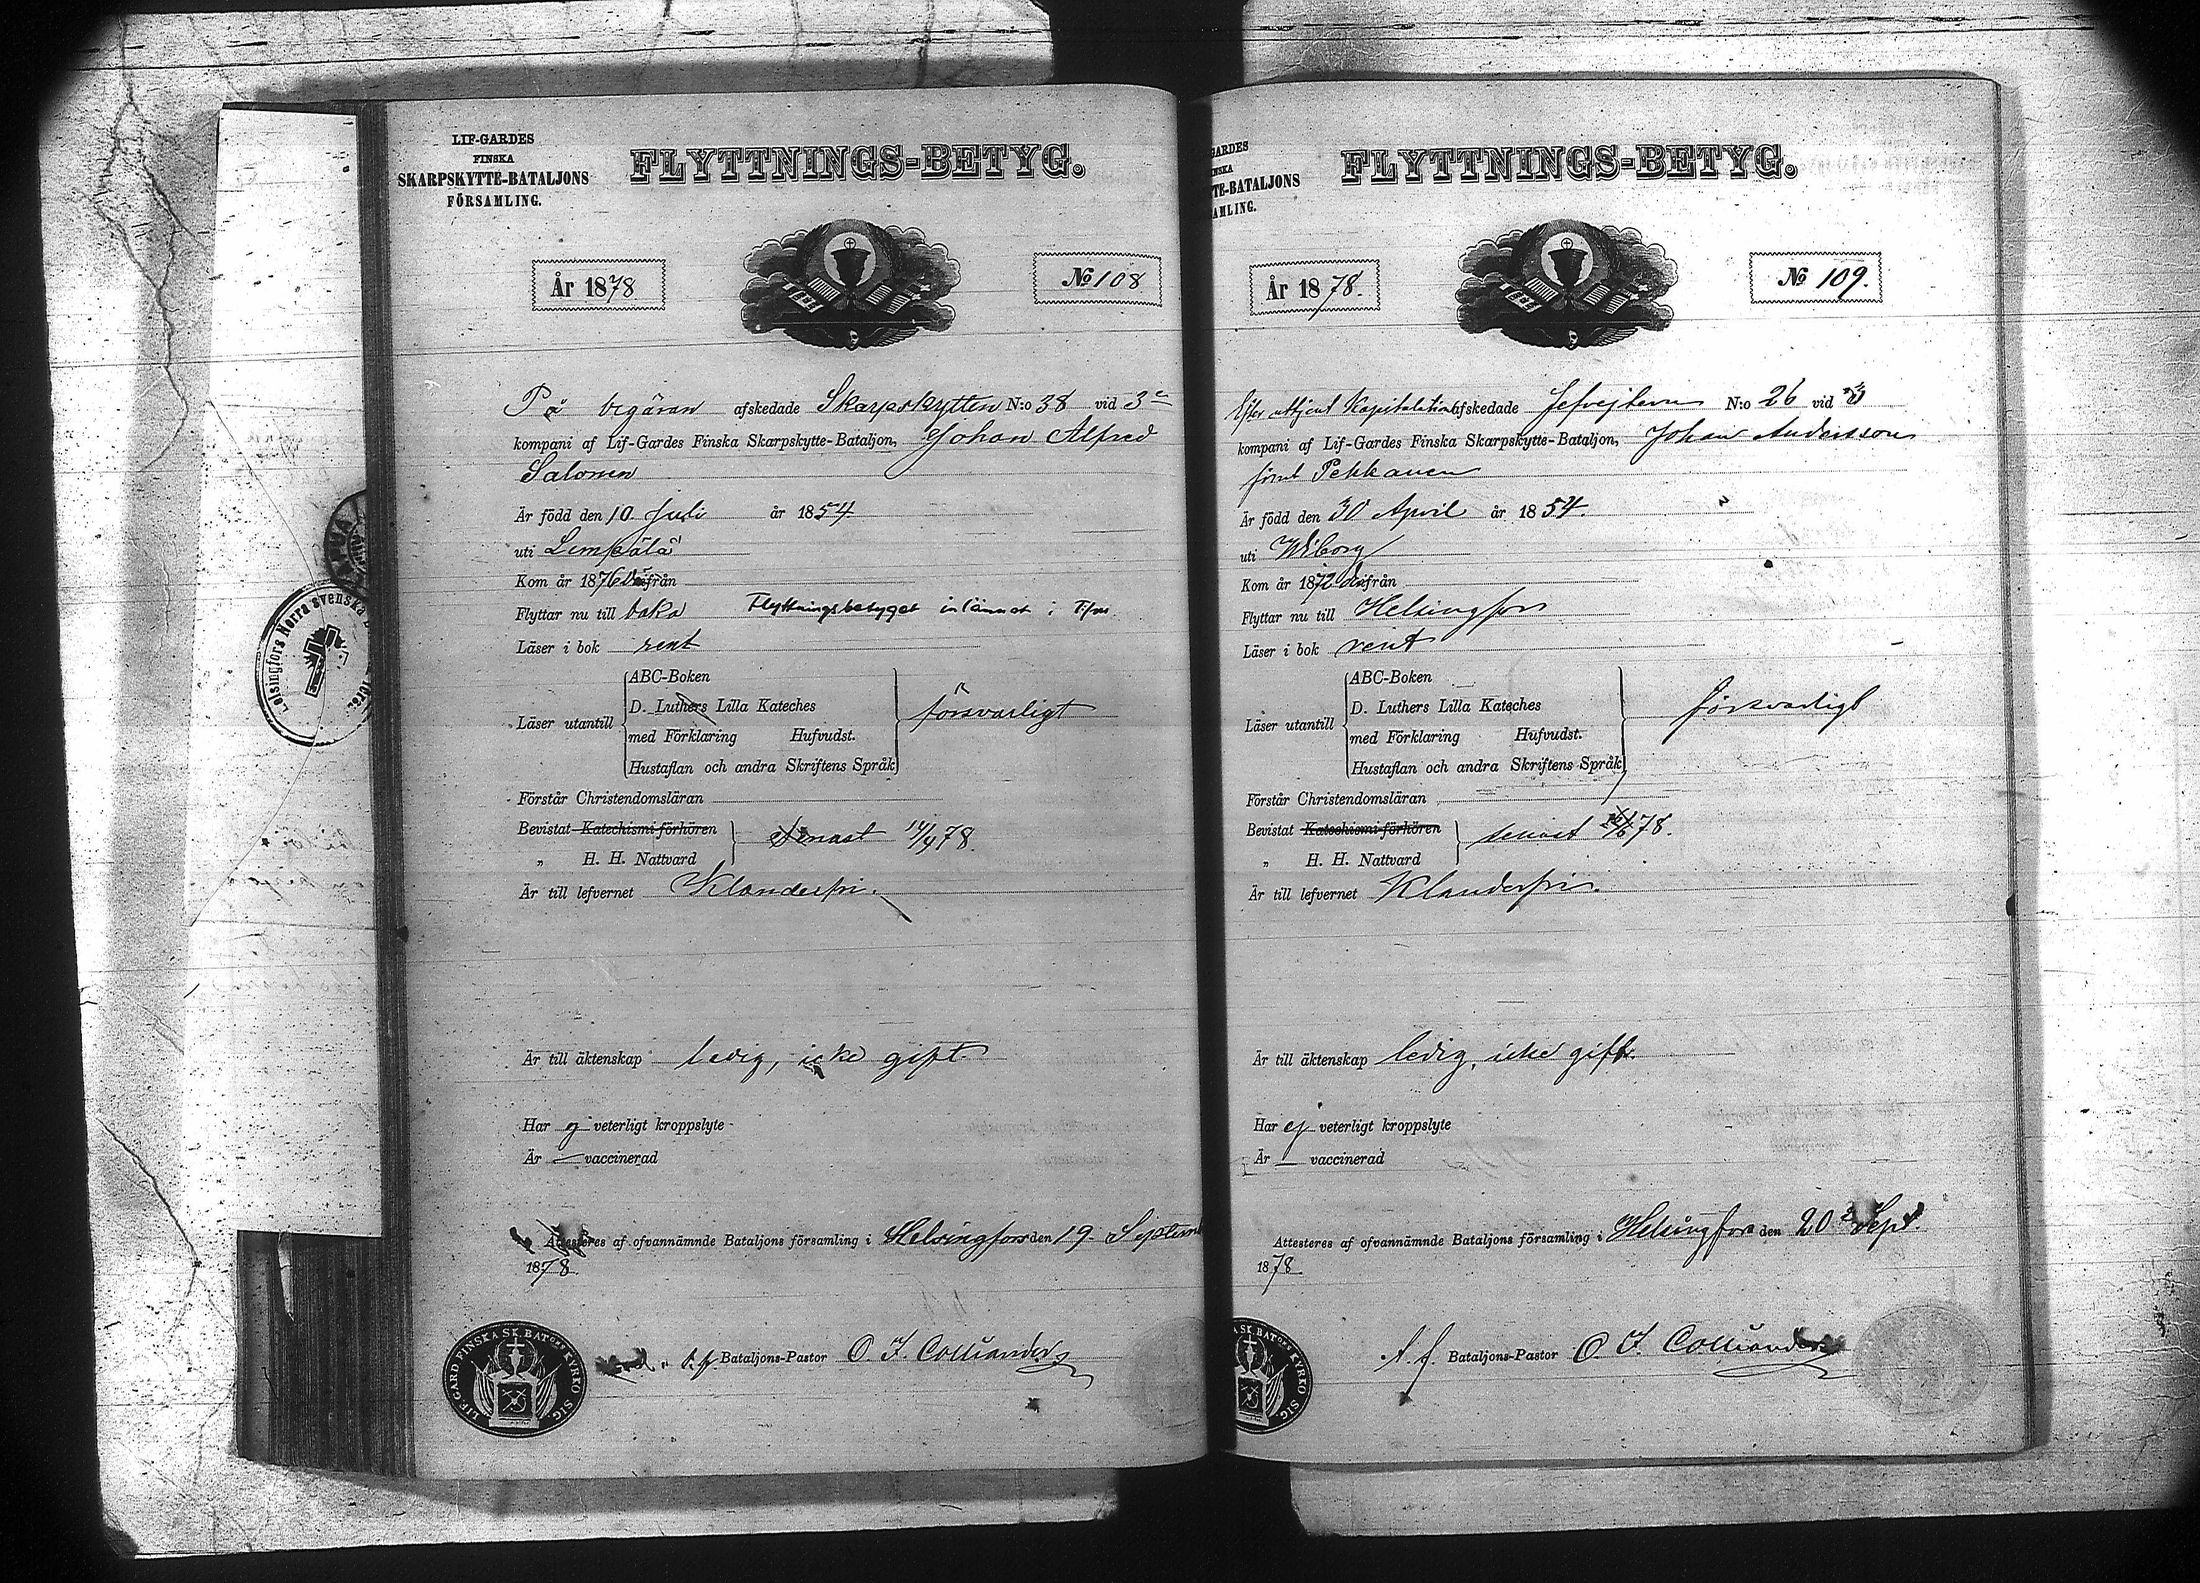 LIF-GARDES
FINSKA
SKARPSKYTTE-BATALJONS
FÖRSAMLING.
FLYTTNINGS-BETYG.
År 1878
No 108
På begäran afskedade Skarpskytten N:o 38 vid 3e
kompani af Lif-Gardes Finska Skarpskytte-Bataljon, Johan Alfred
Salonen
Är född den 10 Juli år 1854
uti Lempälä
Kom år 1876 ifrån
Flyttar nu till baka Flyttningsbetyget inlämnat i
Läser i bok rent
Läser utantill
ABC-Boken
D. Luthers Lilla Kateches
med Förklaring Hufvudst.
Hustaflan och andra Skriftens Språk
försvarligt
Förstår Christendomsläran
Bevistat Katechismi-förhören
„ H. H. Nattvard
senast 14/4 78.
Är till lefvernet Klanderfri.
Är till äktenskap ledig, icke gift
Har ej veterligt kroppslyte
Är — vaccinerad
Attesteres af ofvannämnde Bataljons församling i Helsingfors den 19 Septem
1878.
Bataljons-Pastor O. F. Colliander
LIF-GARD FINSKA SK. BAT:ONS KYRKO SIG.
Helsingfors Norra svenska
GARDES
NSKA
TE-BATALJONS
AMLING.
FLYTTNINGS-BETYG.
År 1878.
No 109.
Efter uttjent Kapitulation afskedade Gefrejtern N:o 26 vid
kompani af Lif-Gardes Finska Skarpskytte-Bataljon, Johan Andersson
förut Pekkanen
Är född den 30 April år 1854.
uti Wiborg
Kom år 1872 ifrån
Flyttar nu till Helsingfors
Läser i bok rent
Läser utantill
ABC-Boken
D. Luthers Lilla Kateches
med Förklaring Hufvudst.
Hustaflan och andra Skriftens Språk
försvarligt
Förstår Christendomsläran
Bevistat Katechismi-förhören
„ H. H. Nattvard
senast 78.
Är till lefvernet Klanderfri.
Är till äktenskap ledig, icke gift.
Har ej veterligt kroppslyte
Är — vaccinerad
Attesteres af ofvannämnde Bataljons församling i Helsingfors den 20 Sept.
1878
A. f. Bataljons-Pastor O. F. Colliander
SK. BAT:ONS KYRKO SIG.